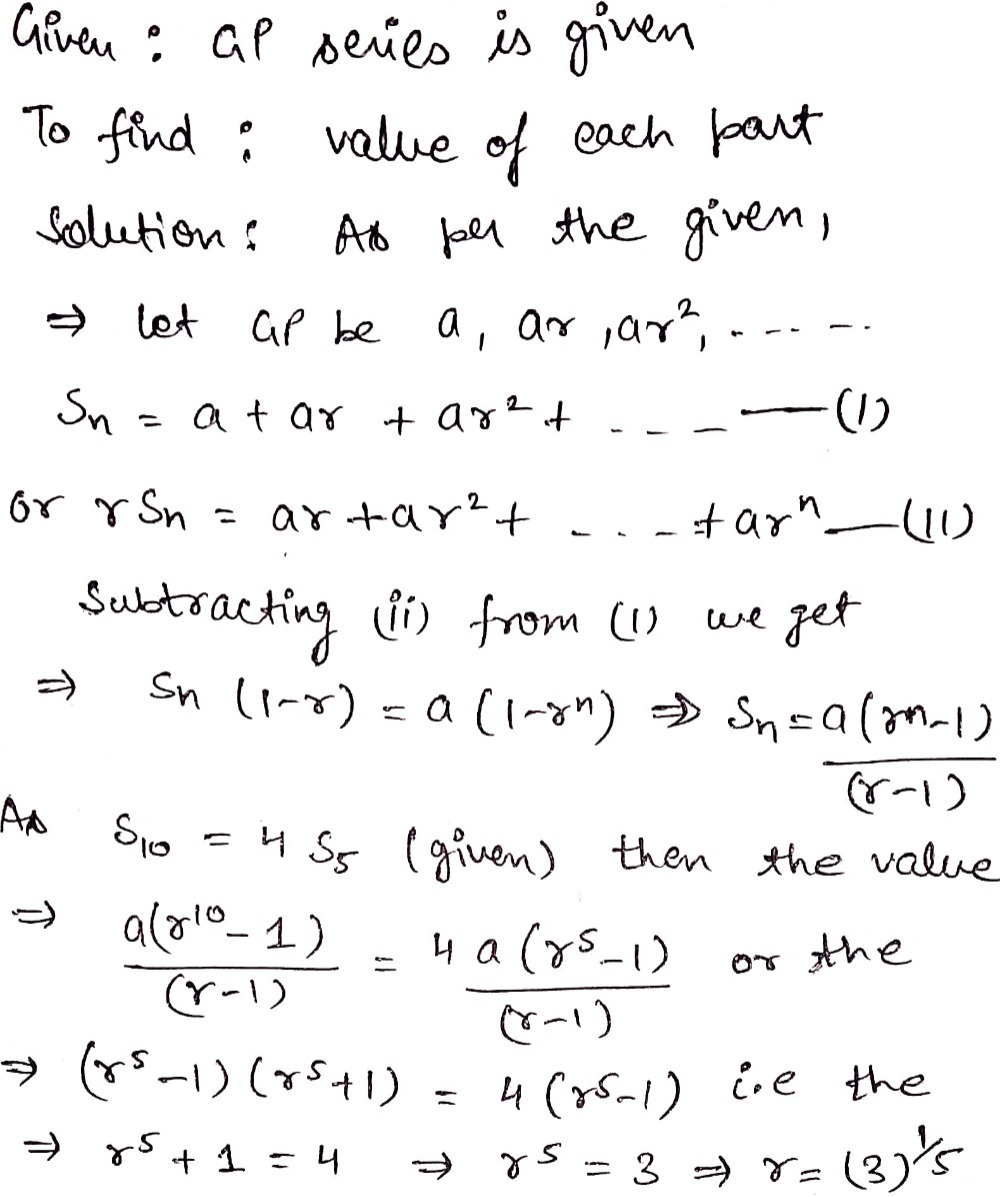 Given : GP series is given
To find : value of each part
Solution : As per the given,
⇒ let GP be a, ar, ar², - - - - -
Sn = a + ar + ar² + - - - —(I)
or rSn = ar + ar² + - - - + arⁿ —(II)
Subtracting (ii) from (I) we get
⇒ Sn (1-r) = a (1-rⁿ) ⇒ Sn = a(rⁿ-1)/(r-1)
As S₁₀ = 4 S₅ (given) then the value
⇒ a(r¹⁰-1)/(r-1) = 4a(r⁵-1)/(r-1) or the
⇒ (r⁵-1)(r⁵+1) = 4(r⁵-1) i.e the
⇒ r⁵ + 1 = 4 ⇒ r⁵ = 3 ⇒ r = (3)^1/5